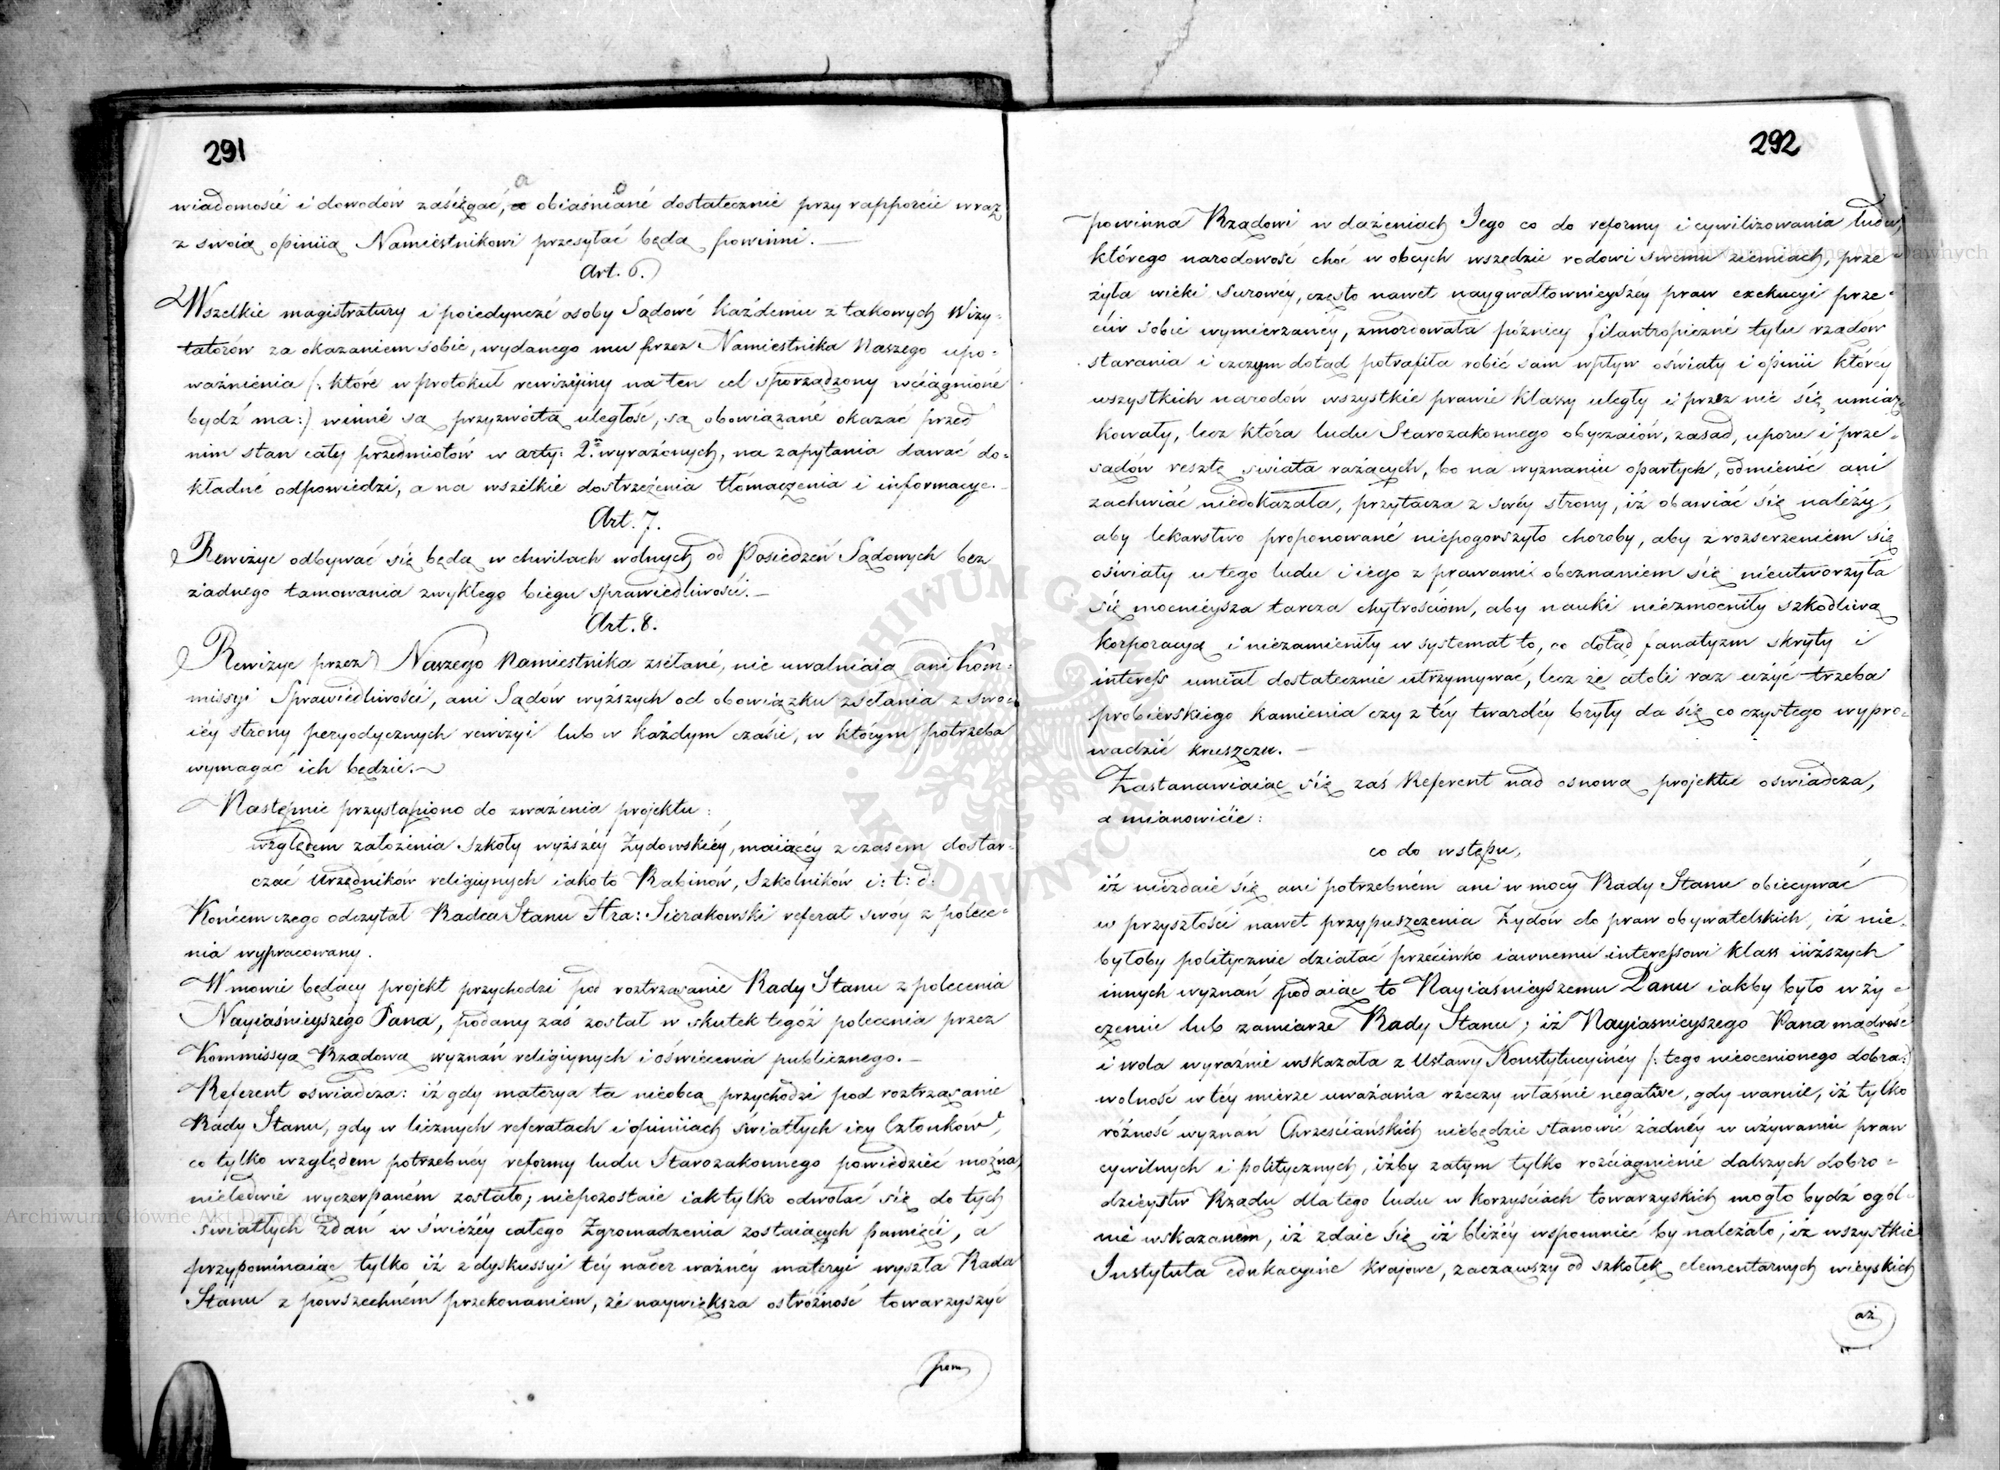 291
wiadomości i dowodów zasięgać, a obiaśnioné dostatecznie przy rapporcie wraz
z swoią opiniią Namiestnikowi przesyłać będą powinni. —
Art. 6.
Wszelkie magistratury i poiedyncze osoby Sądowé każdemu z takowych Wizy-
tatorów za okazaniem sobie, wydanego mu przez Namiestnika Naszego upo-
ważnienia /: które w protokuł rewizyiny na ten cel sporządzony wciągnioné
bydź ma :/ winné są przyzwoitą uległość, są obowiązané okazać przed
nim stan cały przedmiotów w arty: 2. wyrażonych, na zapytania dawać do-
kładné odpowiedzi, a na wszelkie dostrzeżenia tłómaczenia i informacye. —
Art. 7.
Rewizye odbywać się będą w chwilach wolnych od Posiedzeń Sądowych bez
żadnego tamowania zwykłego biegu sprawiedliwości. —
Art. 8.
Rewizye przez Naszego Namiestnika zsełané, nie uwalniaią ani Kom-
missyi Sprawiedliwości, ani Sądów wyższych od obowiązku zsełania z swo-
iéy strony peryodycznych rewizyi lub w każdym czasie, w którym potrzeba
wymagać ich będzie. —
Następnie przystąpiono do zważenia projektu:
względem założenia Szkoły wyższéy Żydowskiéy, maiącéy z czasem dostar-
czać Urzędników religiynych iako to Rabinów, Szkolników i: t: d:
Końcem czego odczytał Radca Stanu Hra: Sierakowski referat swóy z polece-
nia wypracowany.
W mowie będący projekt przychodzi pod roztrząsanie Rady Stanu z polecenia
Nayiaśnieyszego Pana, podany zaś został w skutek tegoż polecenia przez
Kommissyą Rządową wyznań religiynych i oświecenia publicznego. —
Referent oświadcza: iż gdy materya ta nieobcą przychodzi pod roztrząsanie
Rady Stanu, gdy w licznych referatach i opiniiach światłych iéy Członków,
co tylko względem potrzebnéy reformy ludu Starozakonnego powiedzieć można,
nieledwie wyczerpaném zostało; niepozostaie iak tylko odwołać się do tych
światłych zdań w świeżéy całego Zgromadzenia zostaiących pamięci, a
przypominaiąc tylko iż z dyskussyi téy nader ważnéy materyi wyszła Rada
Stanu z powszechném przekonaniem, że naywiększa ostróżność towarzyszyć
pow
292
powinna Rządowi w dążeniach Jego co do reformy i cywilizowania ludu,
którego narodowość choć w obcych wszędzie rodowi swemu ziemiach, prze-
żyła wieki surowéy, często nawet naygwałtownieyszéy praw exekucyi prze-
ciw sobie wymierzanéy, zmordowała późniéy filantropiczné tylu rządów
starania i czczym dotąd potrafiła robić sam wpływ oświaty i opinii któréy
wszystkich narodów wszystkie prawie klassy uległy i przez nie się umiar-
kowały, lecz która ludu Starozakonnego obyczaiów, zasad, uporu i prze-
sądów resztę świata rażących, bo na wyznaniu opartych, odmienić ani
zachwiać niedokazała, przytacza z swéy strony, iż obawiać się należy,
aby lekarstwo proponowané niepogorszyło choroby, aby z rozszerzeniem się
oświaty u tego ludu i iego z prawami obeznaniem się nieutworzyła
się mocnieysza tarcza chytrościom, aby nauki niezmocniły szkodliwą
korporacyą i niezamieniły w systemat to, co dotąd fanatyzm skryty i
interess umiał dostatecznie utrzymywać, lecz że atoli raz użyć trzeba
probierskiego kamienia czy z téy twardéy bryły da się co czystego wypro-
wadzić kruszczu. —
Zastanawiaiąc się zaś Referent nad osnową projektu oświadcza,
a mianowicie:
co do wstępu,
iż niezdaie się ani potrzebném ani w mocy Rady Stanu obiecywać
w przyszłości nawet przypuszczenia Żydów do praw obywatelskich, iż nie-
byłoby politycznie działać przeciwko iawnemu interessowi klass niższych
innych wyznań podaiąc to Nayiaśnieyszemu Panu iakby było w ży-
czeniu lub zamiarze Rady Stanu; iż Nayiaśnieyszego Pana mądrość
i wola wyraźnie wskazała z Ustawy Konstytucyinéy /: tego nieocenionego dobra :/
wolność w téy mierze uważania rzeczy właśnie negative, gdy waruie, iż tylko
różność wyznań Chrześciańskich niebędzie stanowić żadnéy w używaniu praw
cywilnych i politycznych, iżby zatym tylko rozciągnienie dalszych dobro-
dzieystw Rządu dla tego ludu w korzyściach towarzyskich mogło bydź ogól-
nie wskazaném, iż zdaie się iż bliżéy wspomnieć by należało, iż wszystkie
Instytuta edukacyine krajowe, zacząwszy od szkółek elementarnych wieyskich
aż
Archiwum Główne Akt Dawnych
Archiwum Główne Akt Dawnych
ARCHIWUM GŁÓWNE AKT DAWNYCH